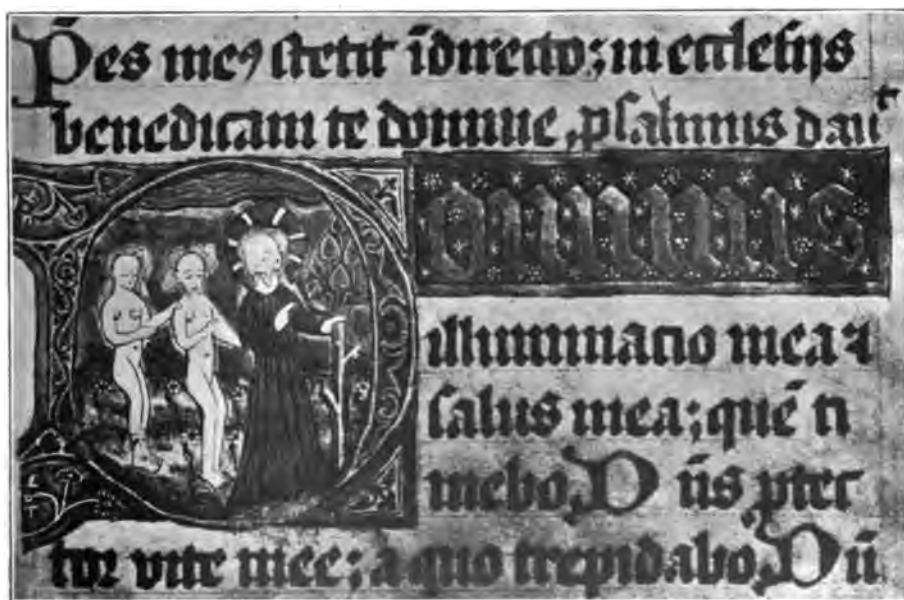 Pes me⁹ stetit ī directo; in ecclesijs
benedicam te domine, psalmus dauᵗ
Dominus
illuminacio mea ⁊
salus mea; quē ti
mebo. Dn̄s ꝓtec
tor vite mee; a quo trepidabo. Dū